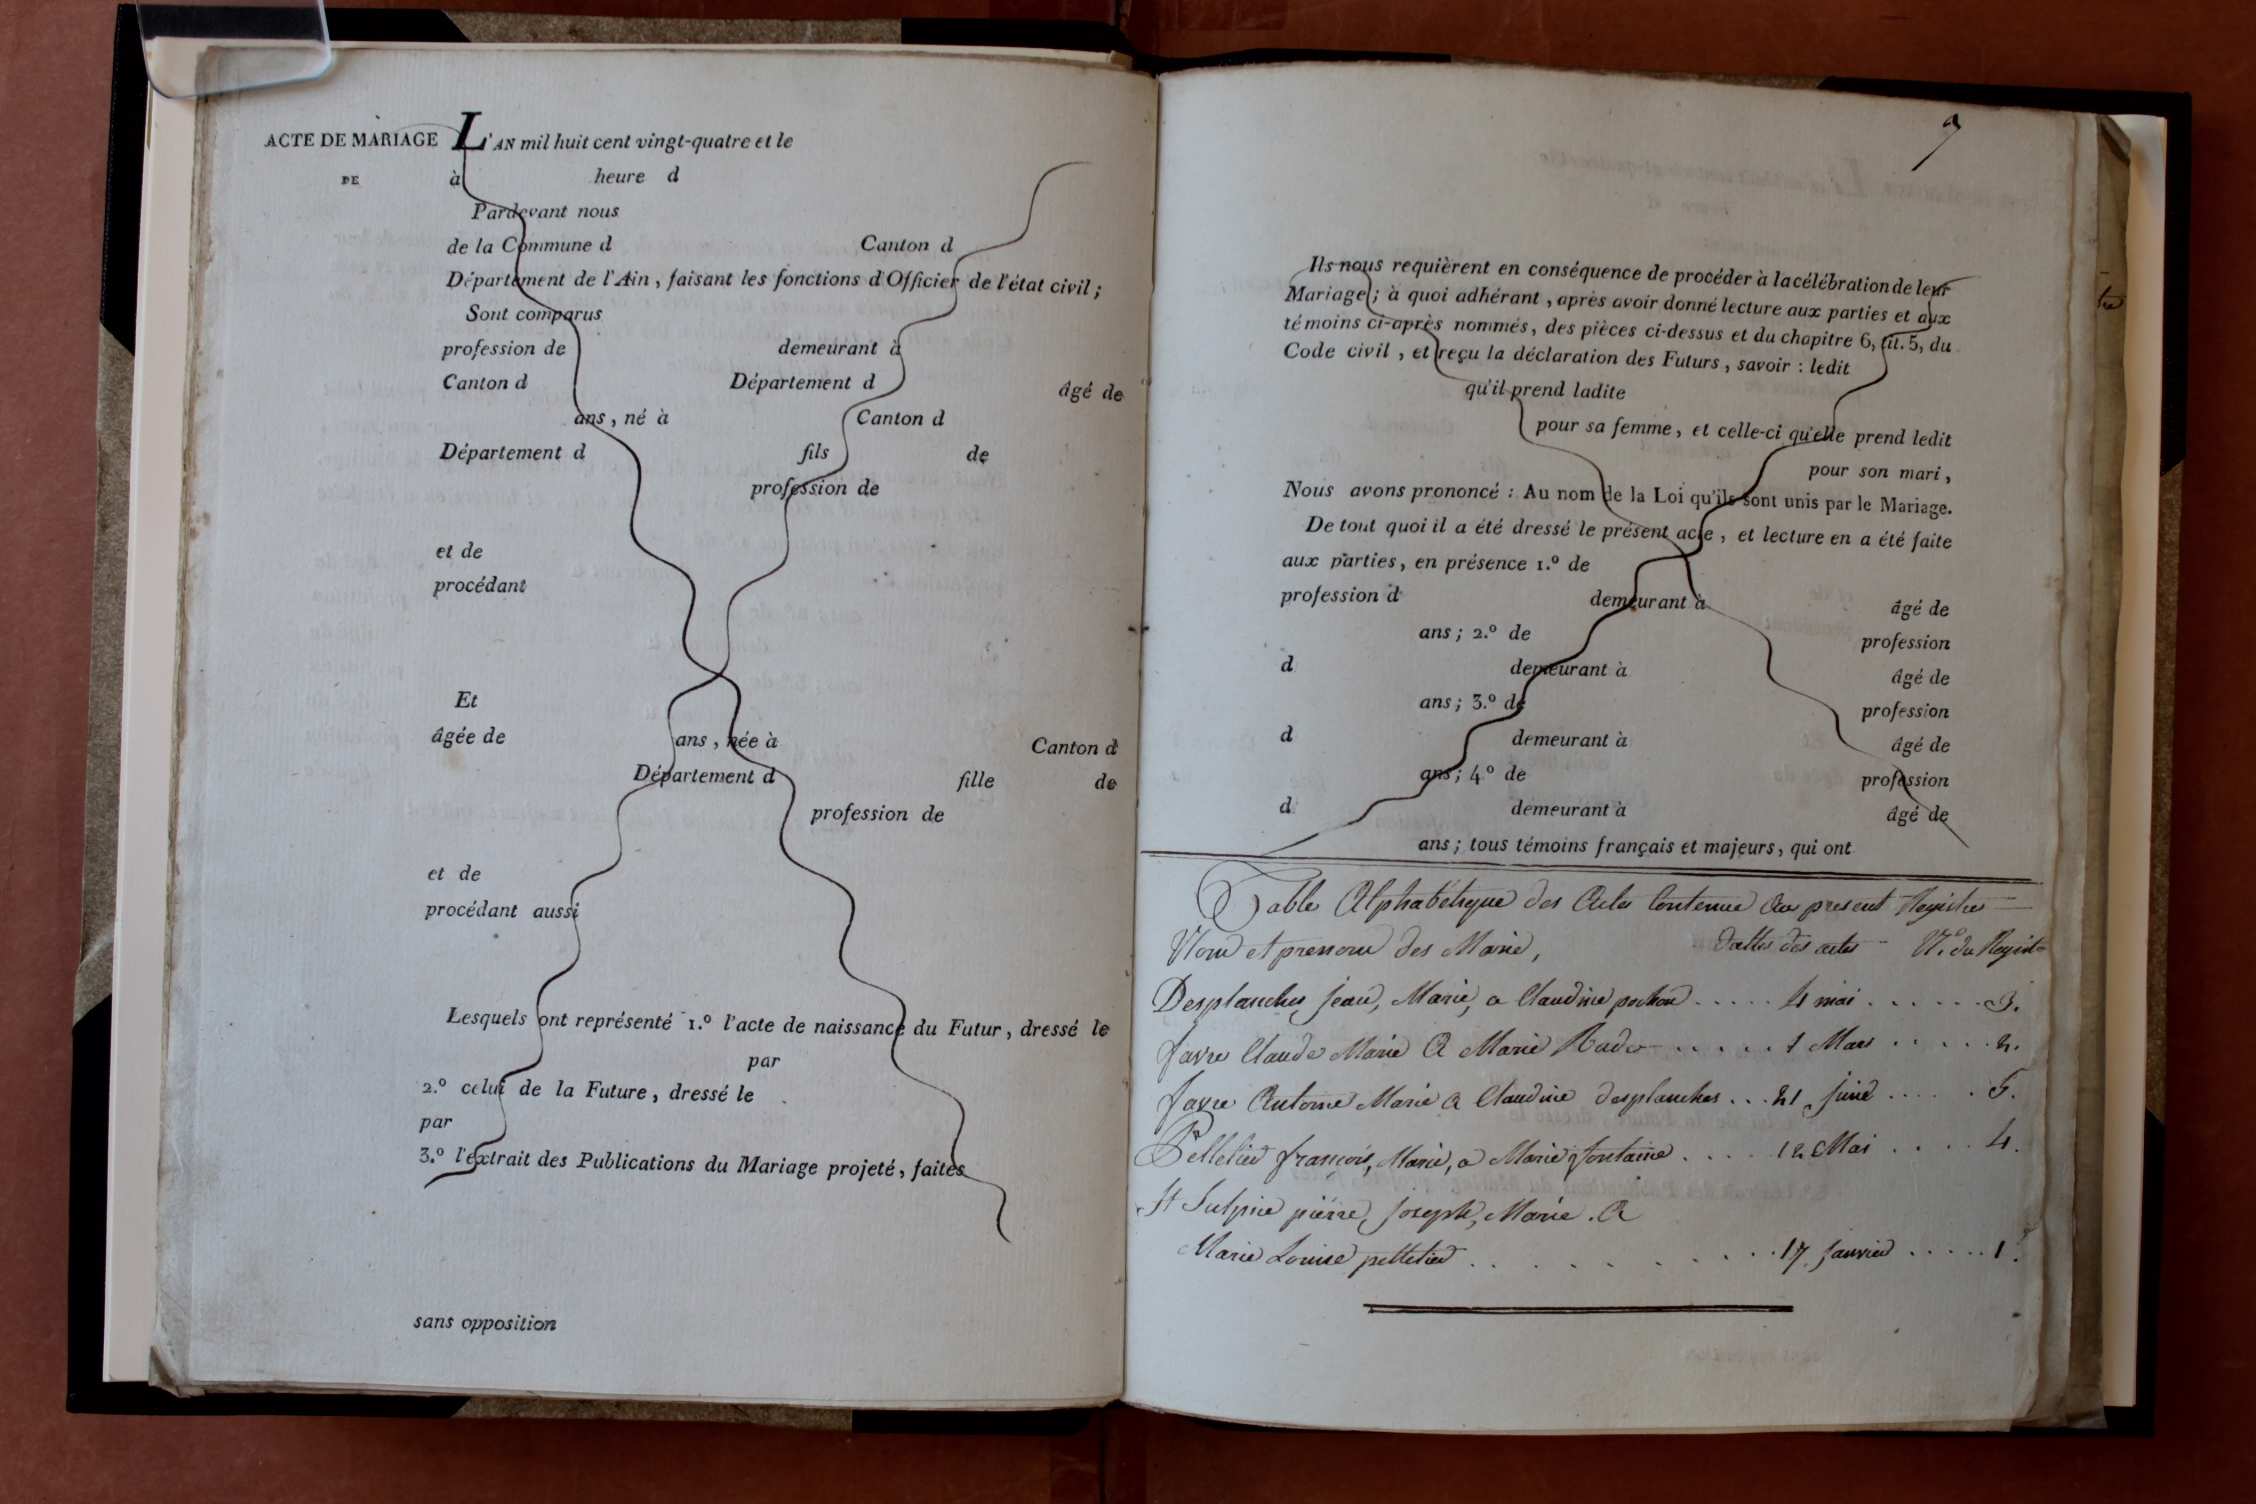 ACTE DE MARIAGE L'AN mil huit cent vingt-quatre et le
DE à heure d
Pardevant nous
de la Commune d Canton d
Département de l'Ain, faisant les fonctions d'Officier de l'état civil;
Sont comparus
profession de demeurant à
Canton d Département d âgé de
ans, né à Canton d
Département d fils de
profession de
et de
procédant
Et
âgée de ans, née à Canton d
Département d fille de
profession de
et de
procédant aussi
Lesquels ont représenté 1.º l'acte de naissance du Futur, dressé le
par
2.º celui de la Future, dressé le
par
3.º l'extrait des Publications du Mariage projeté, faites
sans opposition
9
Ils nous requièrent en conséquence de procéder à la célébration de leur
Mariage; à quoi adhérant, après avoir donné lecture aux parties et aux
témoins ci-après nommés, des pièces ci-dessus et du chapitre 6, tit. 5, du
Code civil, et reçu la déclaration des Futurs, savoir: ledit
qu'il prend ladite
pour sa femme, et celle-ci qu'elle prend ledit
pour son mari,
Nous avons prononcé: Au nom de la Loi qu'ils sont unis par le Mariage.
De tout quoi il a été dressé le présent acte, et lecture en a été faite
aux parties, en présence 1.º de
profession d demeurant à âgé de
ans; 2.º de profession
d demeurant à âgé de
ans; 3.º de profession
d demeurant à âgé de
ans; 4º de profession
d demeurant à âgé de
ans; tous témoins français et majeurs, qui ont
Table Alphabétique des Actes Contenue au present Registre
Nom et prenom des Marié, dattes des actes - Nº. du Registre
Desplanches, jean, Marié, a Claudine pochon ..... 4 mai ...... 3.
favre Claude Marié A Marie ..... 1 Mars ..... 2.
favre Antoine Marié A Claudine desplanches ... 21 juin .... 5.
Pelletier françois, Marié, a Marie fontaine .... 12 Mai .... 4.
St Sulpice pierre, joseph, Marié. A
Marie Louise pelletier .......... 17 janvier ..... 1.